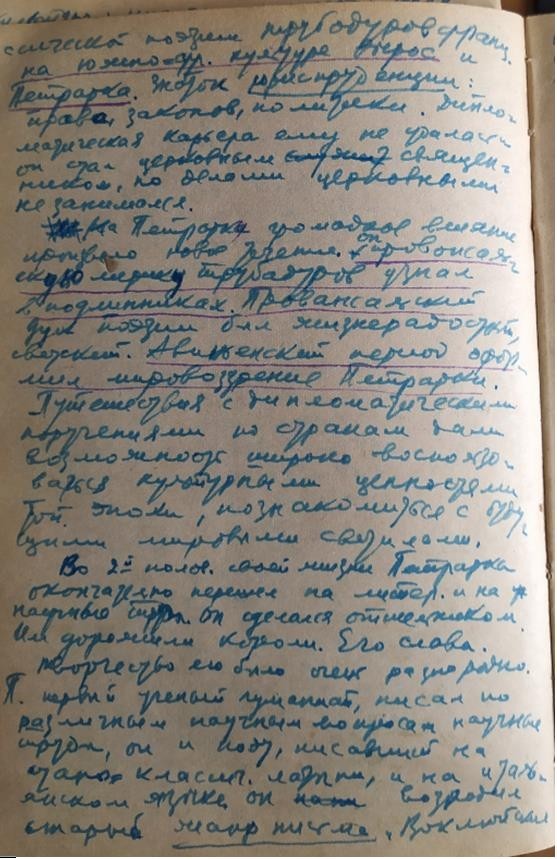 поэзии трубадуров франц.
на южно-фр. культуре вырос и
Петрарка. Знаток юриспруденции:
права, законов, политики. Дипло-
матическая карьера ему не удалась
он стал церковным священ-
ником, но делами церковными
не занимался.
На Петрарку громадное влияние
он провансаль-
скую лирику трубадуров узнал
в подлинниках. Провансальский
дух поэзии был жизнерадостный,
светский. Авиньонский период офор-
мил мировоззрение Петрарки.
Путешествия с дипломатическими
поручениями по странам дали
возможность широко воспользо-
ваться культурными ценностями
той эпохи, познакомиться с буду-
щими мировыми светилами.
Во 2й полов. своей жизни Петрарка
окончательно перешел на литер. и на
научные труды. Он сделался отшельником.
Им дорожили короли. Его слава.
Творчество его было очень разнородно.
П. первый ученый гуманист, писал по
различным научным вопросам научные
труды, он и поэт, писавший на
классич. латыни, и на италь-
янском языке, он возродил
старый жанр письма.